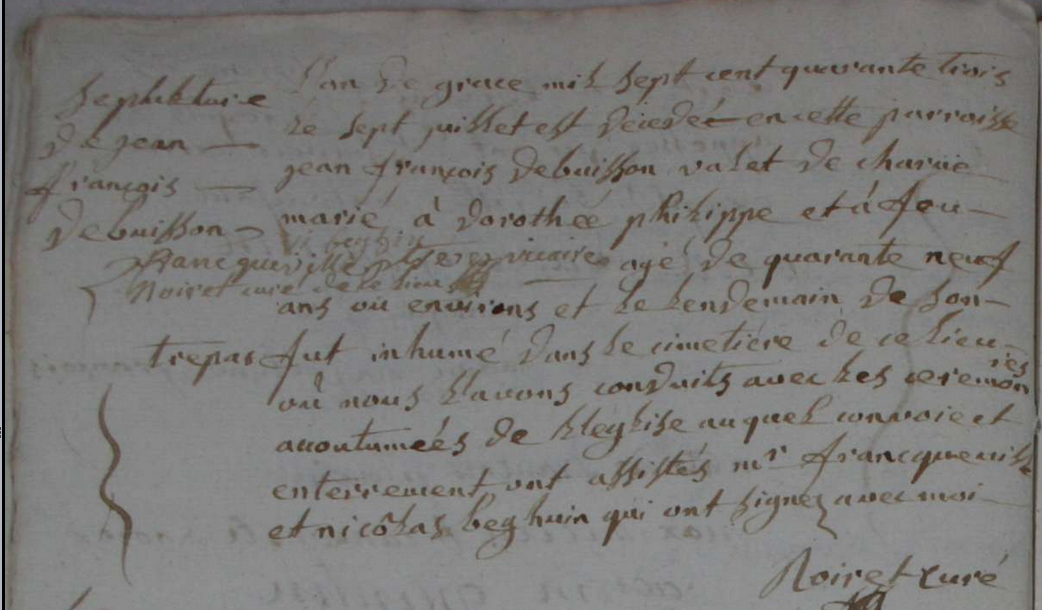 sepulkture
de jean
françois
debuisson
L'an de grace mil sept cent quarante trois
le sept juillet est décédé en cette parroisse
jean françois debuisson valet de charüe
marié à dorothée philippe et à feu
beghin
francqueville vicaire agé de quarante neuf
Noiret curé de ce lieu
ans ou environs et le lendemain de son
trepas fut inhumé dans le cimetiére de ce lieu
où nous l'avons conduits avec les ceremonies
acoutumeés de l'eglise auquel convoie et
enterrement ont assistés mr francqueville
et nicolas beghuin qui ont signez avec moi
Noiret curé